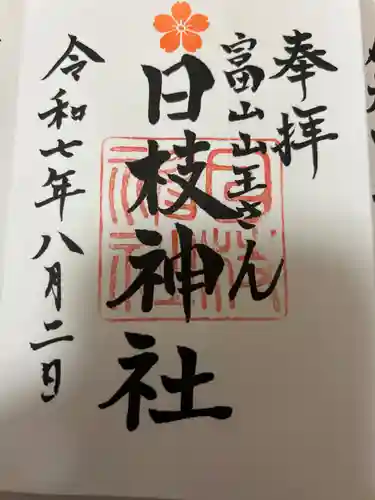 奉拝
富山山王さん
日枝神社
令和七年八月二日
日枝
神社